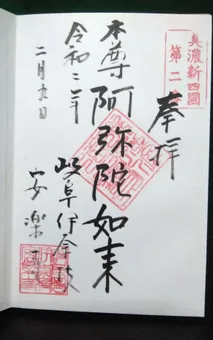 奥濃新四國
第二
奉拝
本尊阿弥陀如来
岐阜伊奈波
安楽寺
令和二年
二月九日